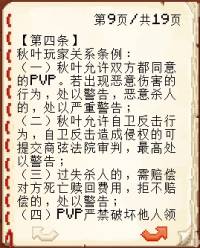 第9页/共19页
【第四条】
秋叶玩家关系条例：
（一）秋叶允许双方都同意
的PVP。若出现恶意伤害的
行为，处以警告，恶意杀人
的，处以严重警告；
（二）秋叶允许自卫反击行
为，自卫反击造成侵权的可
提交商弦法院审判，最高处
以警告；
（三）过失杀人的，需赔偿
对方死亡赎回费用，拒不赔
偿的，处以警告；
（四）PVP严禁破坏他人领